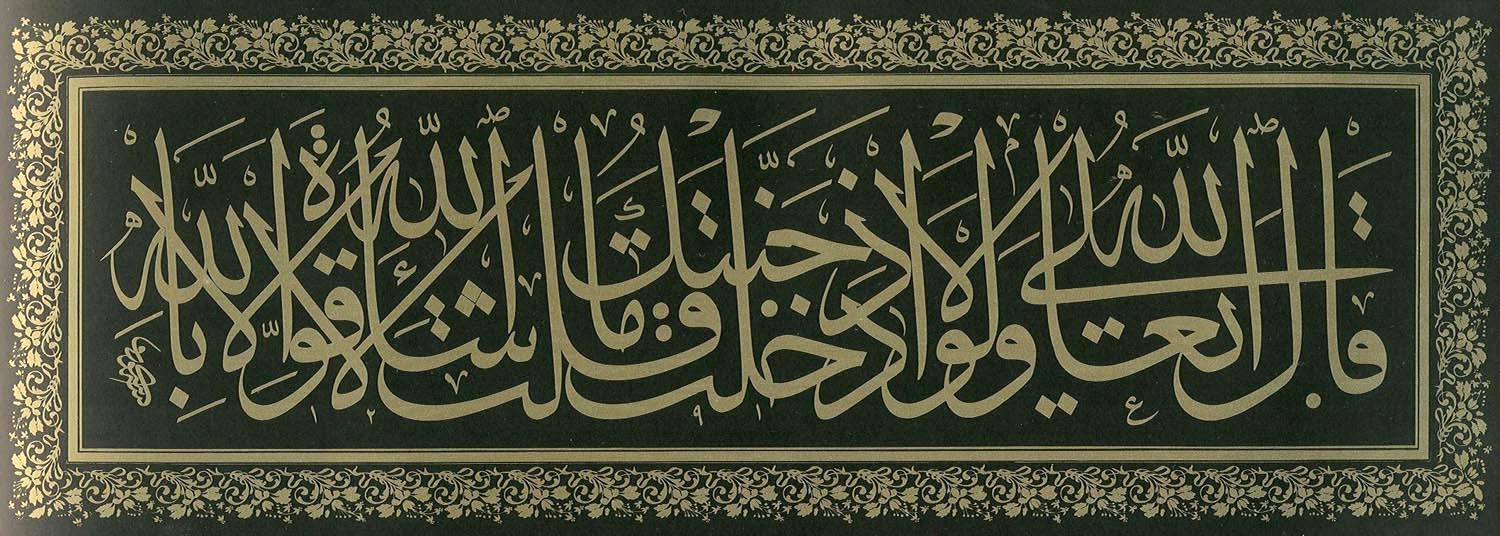 قال الله تعالى ولولا إذ دخلت جنتك قلت ما شاء الله لا قوة إلا بالله